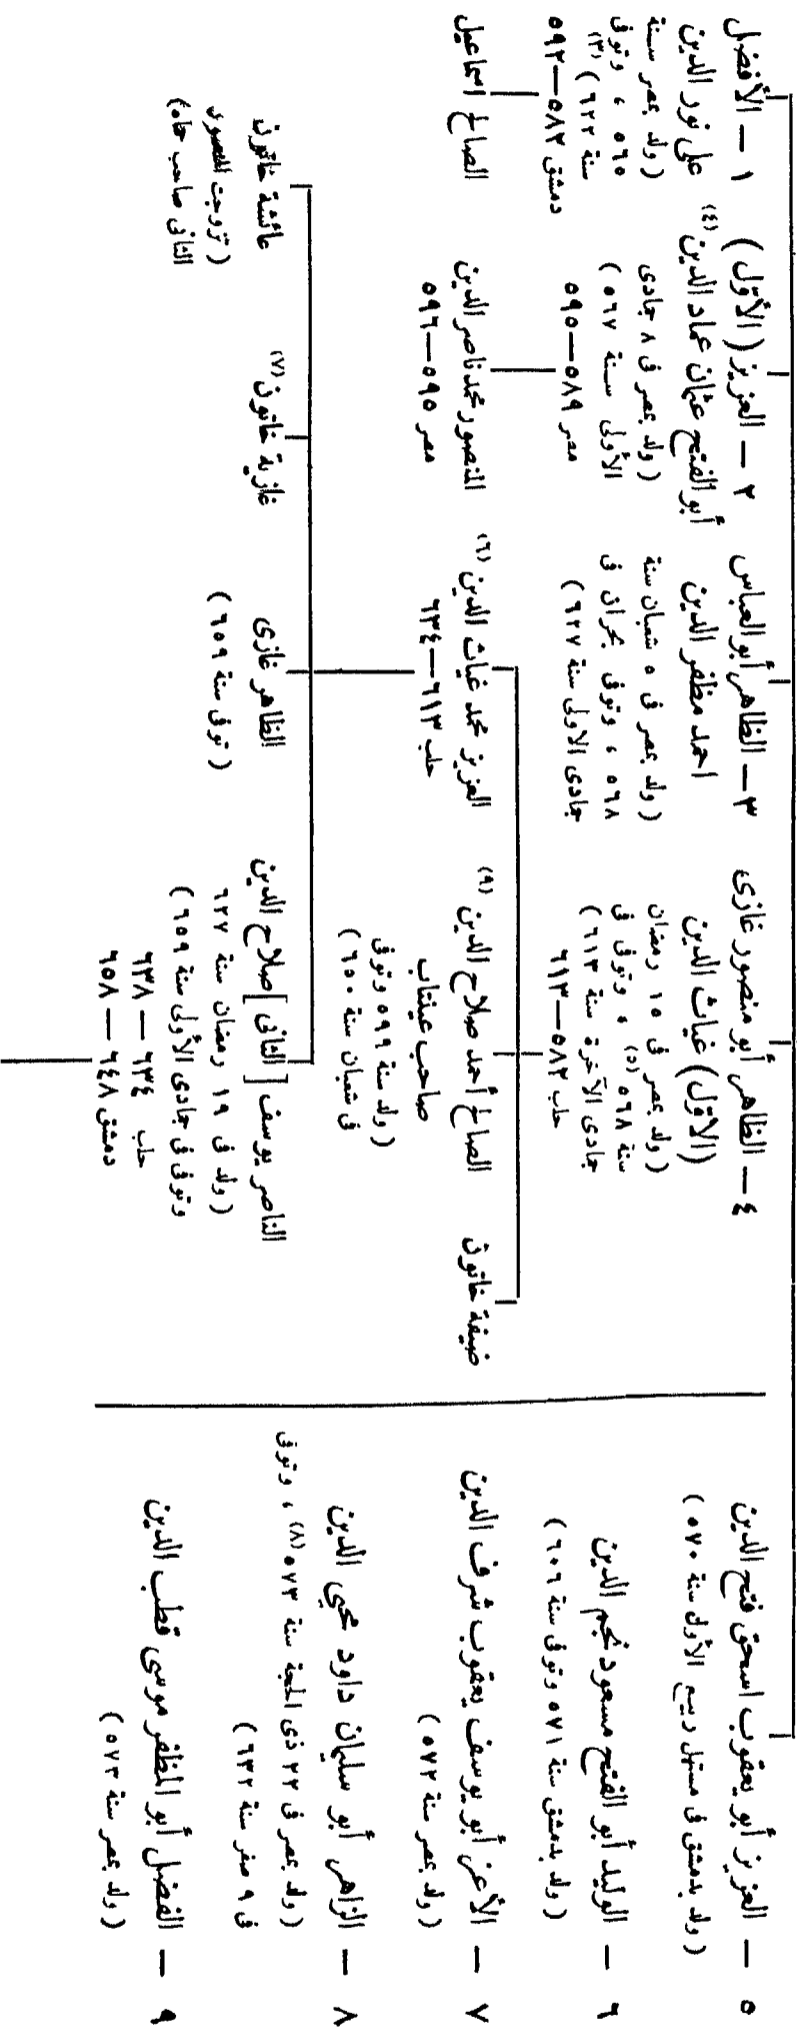 ١ — الأفضل
على نور الدين
(ولد بمصر سنة
٥٦٥ ، وتوفى
سنة ٦٢٢) (٣)
دمشق ٥٨٢—٥٩٢
الصالح اسماعيل
٢ — العزيز (الأوّل)
أبو الفتح عثمان عماد الدين (٤)
(ولد بمصر فى ٨ جمادى
الأولى سنة ٥٦٧)
مصر ٥٨٩—٥٩٥
المنصور محمد ناصر الدين
مصر ٥٩٥—٥٩٦
٣ — الظاهر أبو العباس
احمد مظفر الدين
(ولد بمصر فى ٥ شعبان سنة
٥٦٨ ، وتوفى بحران فى
جمادى الاولى سنة ٦٢٧)
٤ — الظاهر أبو منصور غازى
(الاوّل) غياث الدين
(ولد بمصر فى ١٥ رمضان
سنة ٥٦٨ (٥) ، وتوفى فى
جمادى الآخرة سنة ٦١٣)
حلب ٥٨٢—٦١٣
العزيز محمد غياث الدين (٦)
حلب ٦١٣—٦٣٤
الصالح أحمد صلاح الدين (٩)
صاحب عينتاب
(ولد سنة ٥٩٩ وتوفى
فى شعبان سنة ٦٥٠)
ضيفة خاتون
عائشة خاتون
(تزوجت المنصور
الثانى صاحب حماه)
غازية خاتون (٧)
الظاهر غازى
(توفى سنة ٦٥٩)
الناصر يوسف [الثانى] صلاح الدين
(ولد فى ١٩ رمضان سنة ٦٢٧
وتوفى فى جمادى الأولى سنة ٦٥٩)
حلب ٦٣٤ — ٦٣٨
دمشق ٦٤٨ — ٦٥٨
٥ — العزيز أبو يعقوب اسحق فتح الدين
(ولد بدمشق فى مستهل ربيع الأول سنة ٥٧٠)
٦ — الوليد أبو الفتح مسعود نجم الدين
(ولد بدمشق سنة ٥٧١ وتوفى سنة ٦٠٦)
٧ — الأعز أبو يوسف يعقوب شرف الدين
(ولد بمصر سنة ٥٧٢)
٨ — الزاهر أبو سليمان داود محيي الدين
(ولد بمصر فى ٢٢ ذى الحجة سنة ٥٧٣ (٨) ، وتوفى
فى ٩ صفر سنة ٦٣٢)
٩ — الفضل أبو المظفر موسى قطب الدين
(ولد بمصر سنة ٥٧٣)